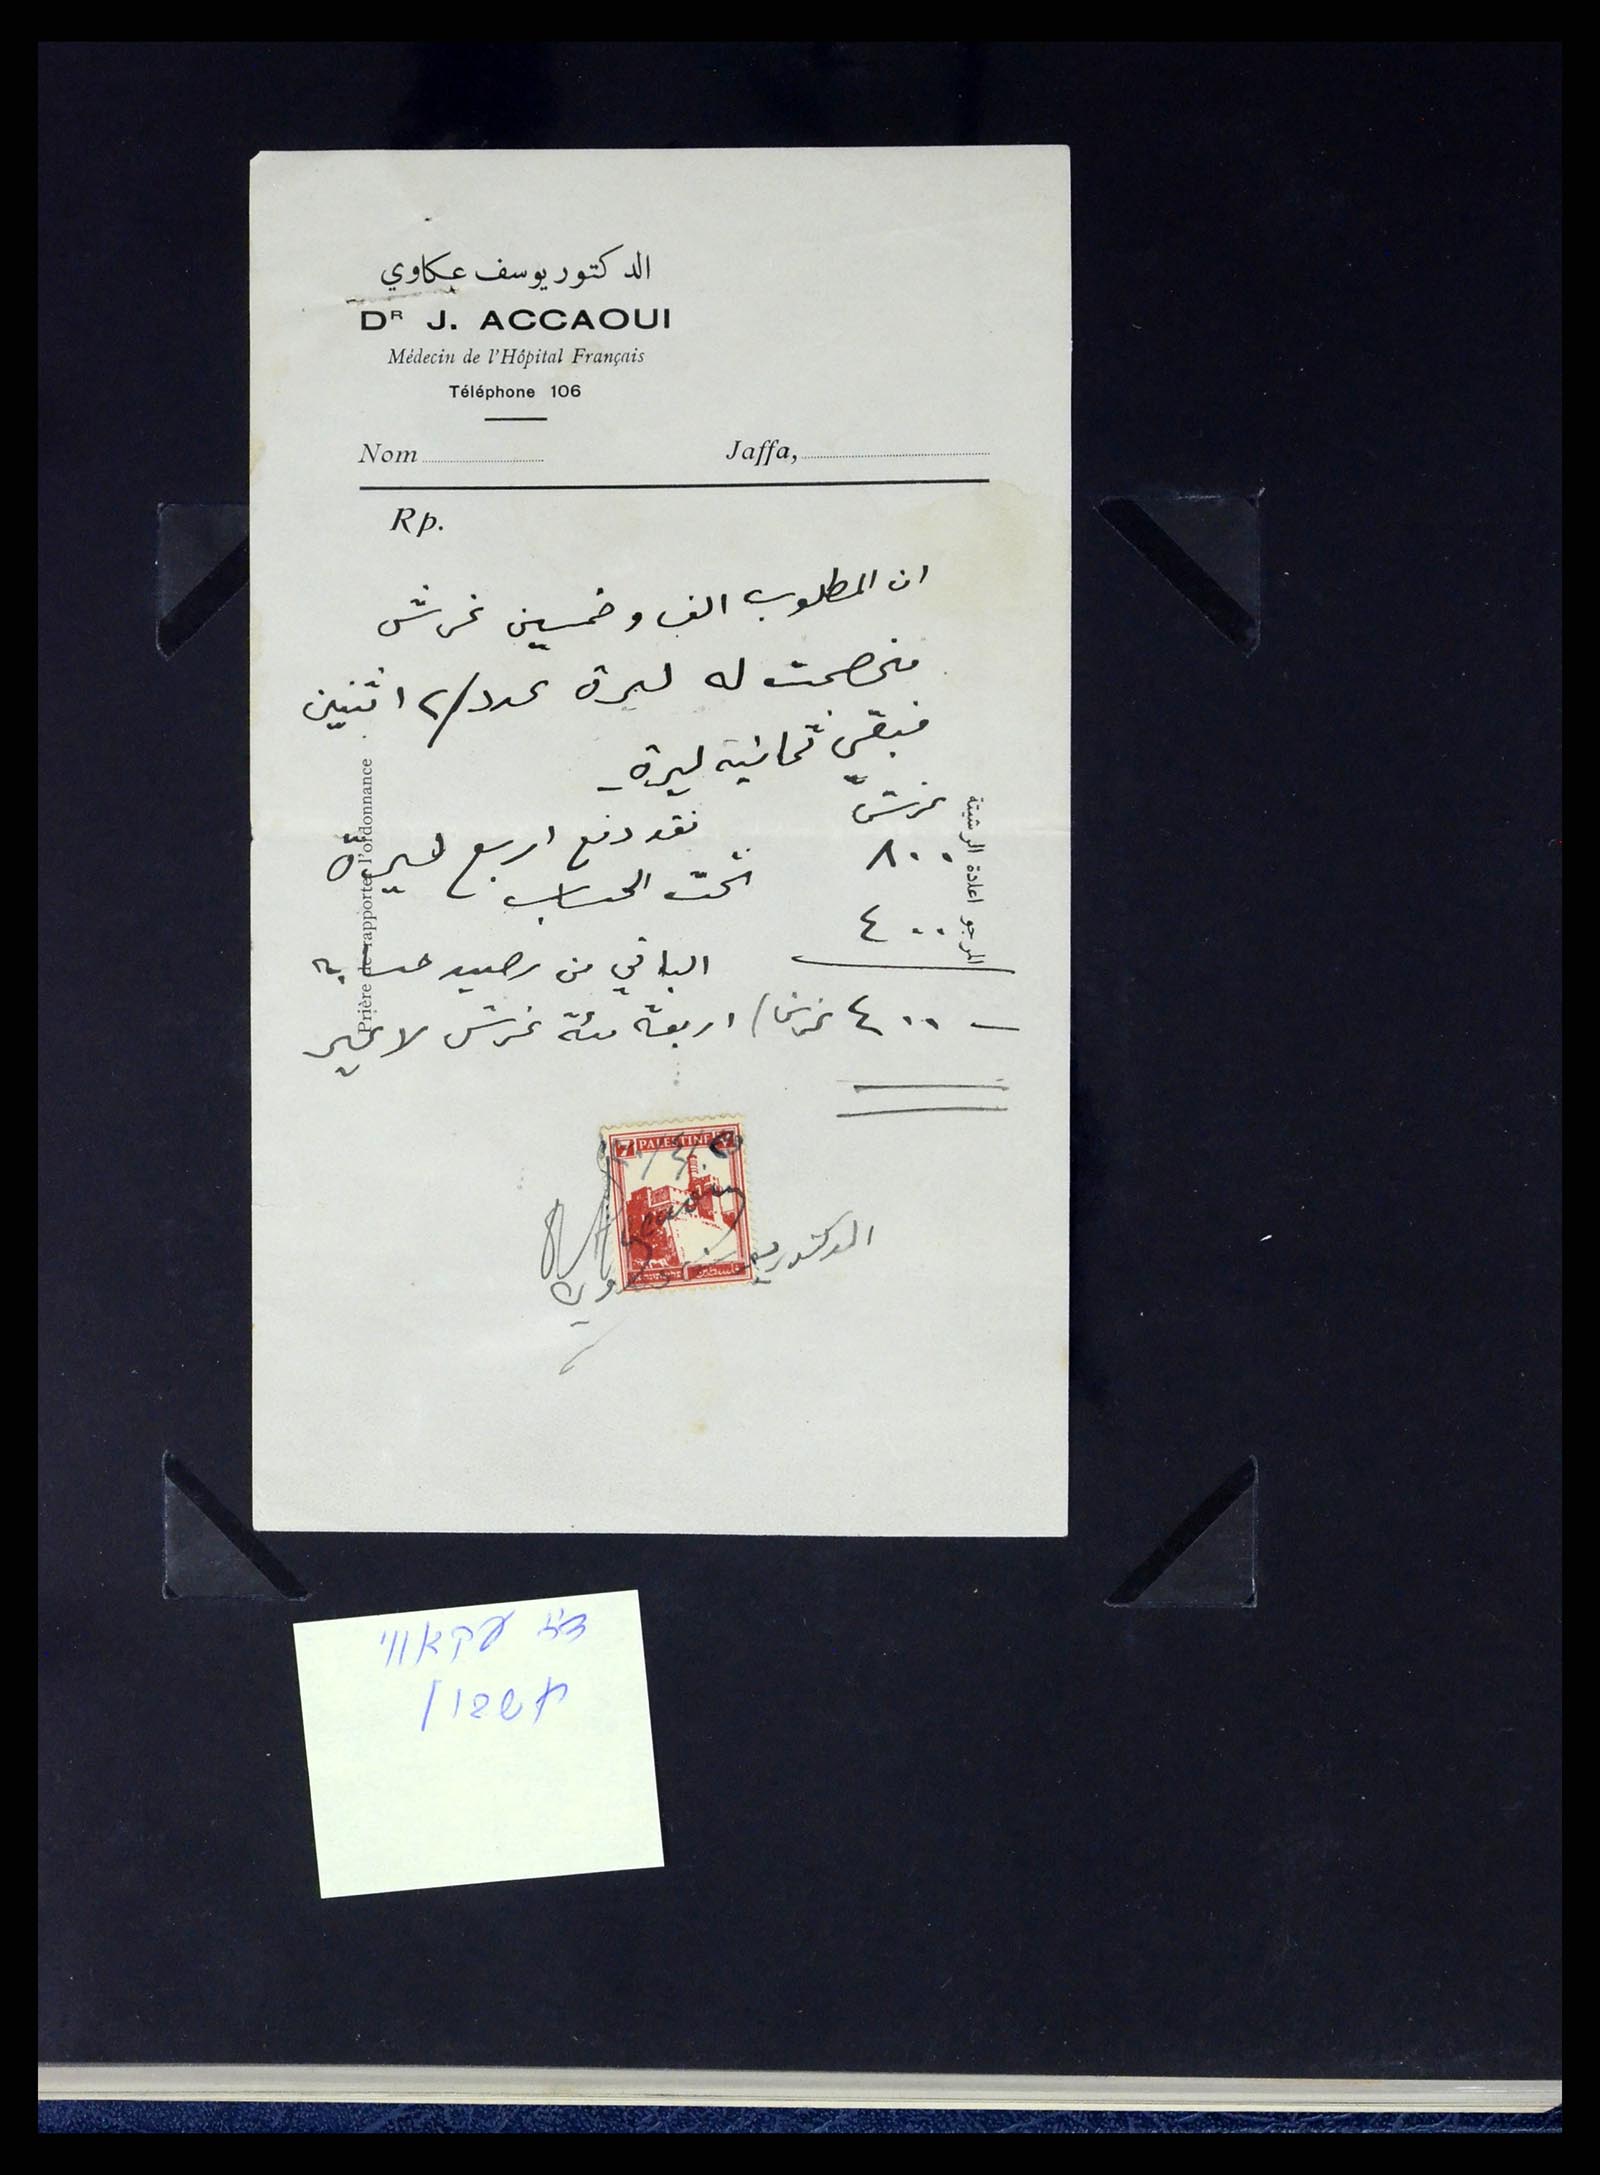 الدكتور يوسف عكاوي
DR J. ACCAOUI
Médecin de l'Hôpital Français
Téléphone 106
Nom
Jaffa,
Rp.
ان المطلوب الف وخمسين غرش
فخصمت له ليرة عدد/٢ اثنين
فبقي ثمانية ليرة
غرش
٨٠٠ فقد دفع اربع ليرة
تحت الحساب
٤٠٠
الباقي من رصيد حسابه
٤٠٠ غرش / اربعة مئة غرش لا غير
المرجو اعادة الرشيتة
Prière de rapporter l'ordonnance
7 PALESTINE 7
الدكتور يوسف عكاوي
דר עקאווי
חשבון